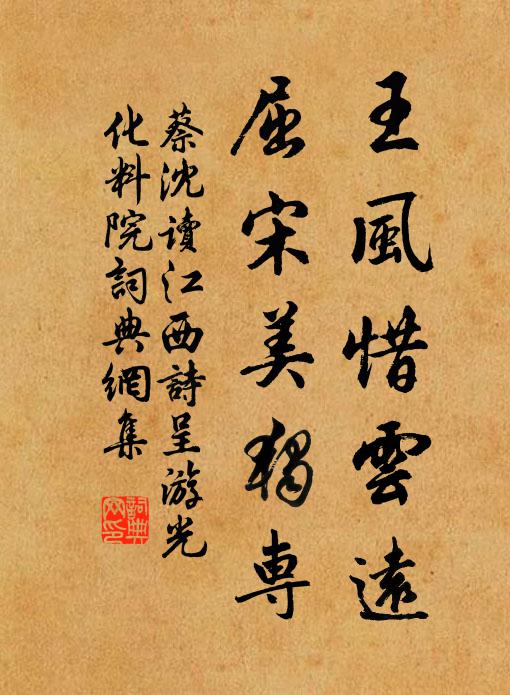 王風惜雲遠
屈宋美獨專
蔡沈讀江西詩呈游光
化料院詞典網集
詞典网印